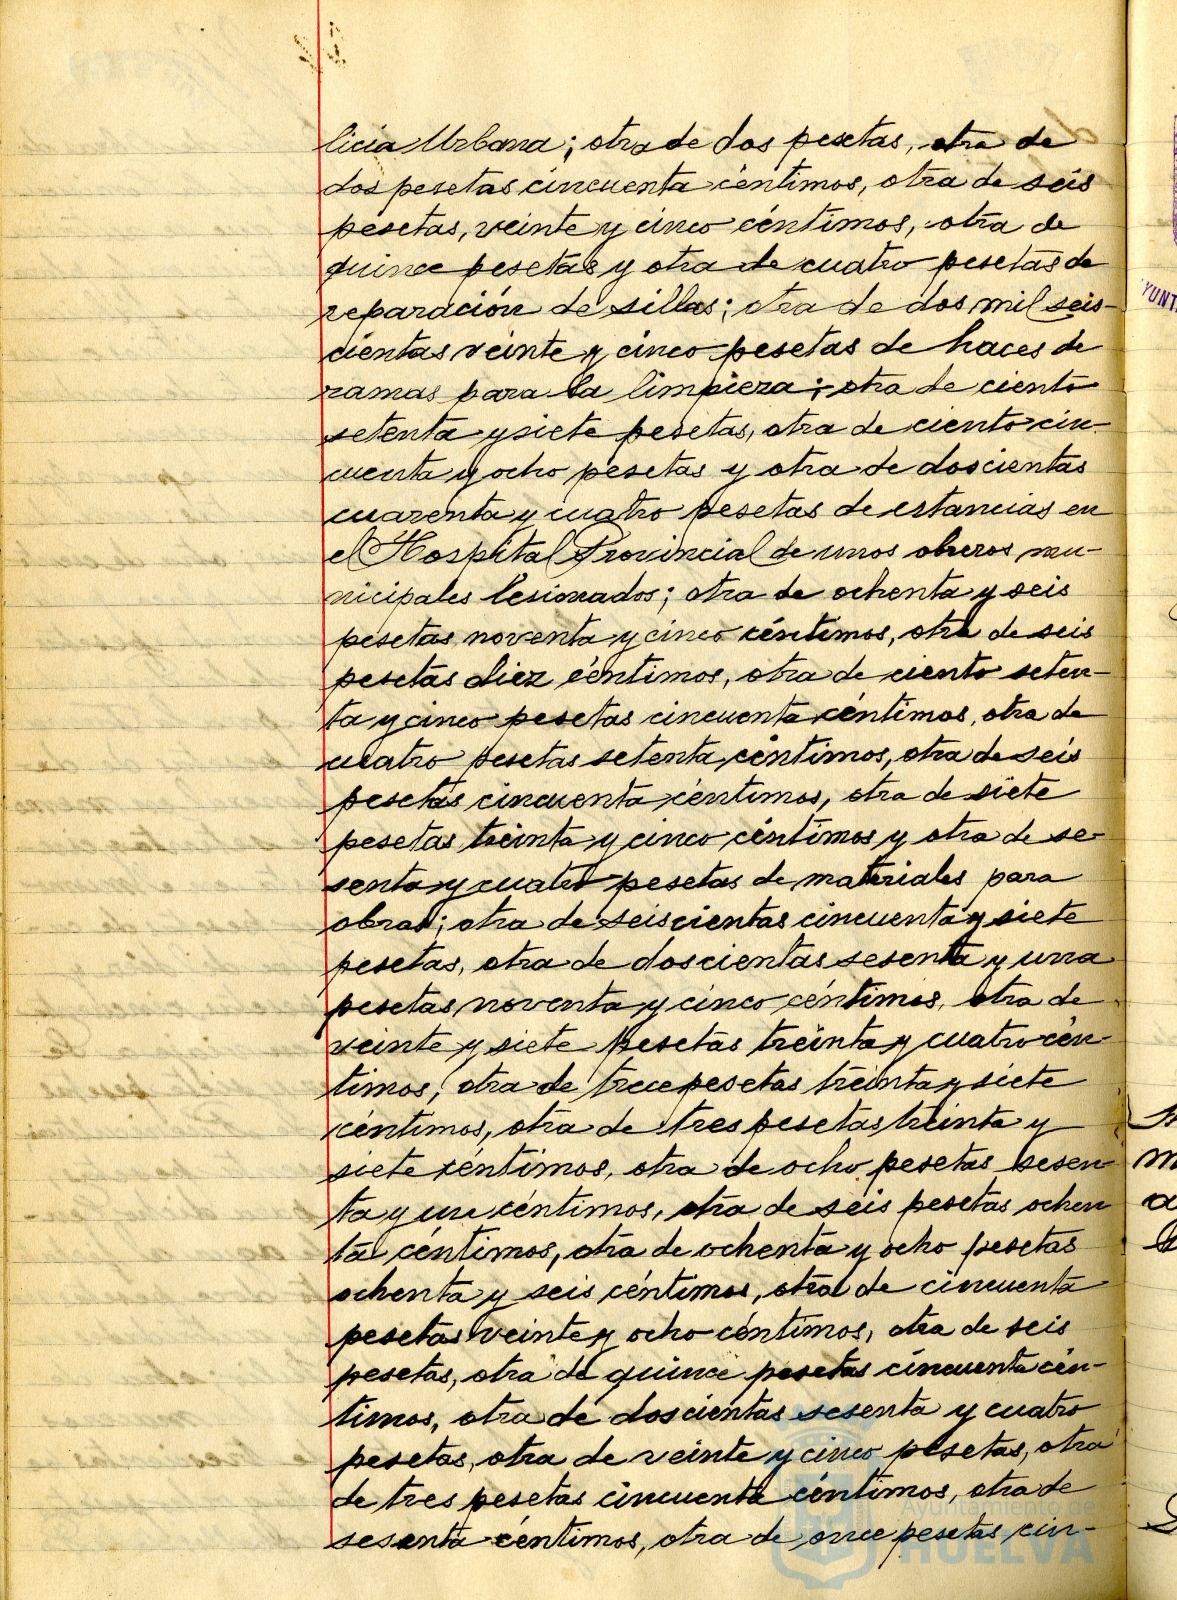 licia Urbana; otra de dos pesetas, otra de
dos pesetas cincuenta céntimos, otra de seis
pesetas, veinte y cinco céntimos, otra de
quince pesetas y otra de cuatro pesetas de
reparación de sillas; otra de dos mil seis-
cientas veinte y cinco pesetas de haces de
ramas para la limpieza; otra de ciento
setenta y siete pesetas, otra de ciento cin-
cuenta y ocho pesetas y otra de doscientas
cuarenta y cuatro pesetas de estancias en
el Hospital Provincial de unos obreros mu-
nicipales lesionados; otra de ochenta y seis
pesetas noventa y cinco céntimos, otra de seis
pesetas diez céntimos, otra de ciento seten-
ta y cinco pesetas cincuenta céntimos, otra de
cuatro pesetas setenta céntimos, otra de seis
pesetas cincuenta céntimos, otra de siete
pesetas treinta y cinco céntimos y otra de se-
senta y cuatro pesetas de materiales para
obras; otra de seiscientas cincuenta y siete
pesetas, otra de doscientas sesenta y una
pesetas noventa y cinco céntimos, otra de
veinte y siete pesetas treinta y cuatro cén-
timos, otra de trece pesetas treinta y siete
céntimos, otra de tres pesetas treinta y
siete céntimos, otra de ocho pesetas sesen-
ta y un céntimos, otra de seis pesetas ochen
ta céntimos, otra de ochenta y ocho pesetas
ochenta y seis céntimos, otra de cincuenta
pesetas veinte y ocho céntimos, otra de seis
pesetas, otra de quince pesetas cincuenta cén-
timos, otra de doscientas sesenta y cuatro
pesetas, otra de veinte y cinco pesetas, otra
de tres pesetas cincuenta céntimos, otra de
sesenta céntimos, otra de once pesetas cin-
Ayuntamiento de
HUELVA